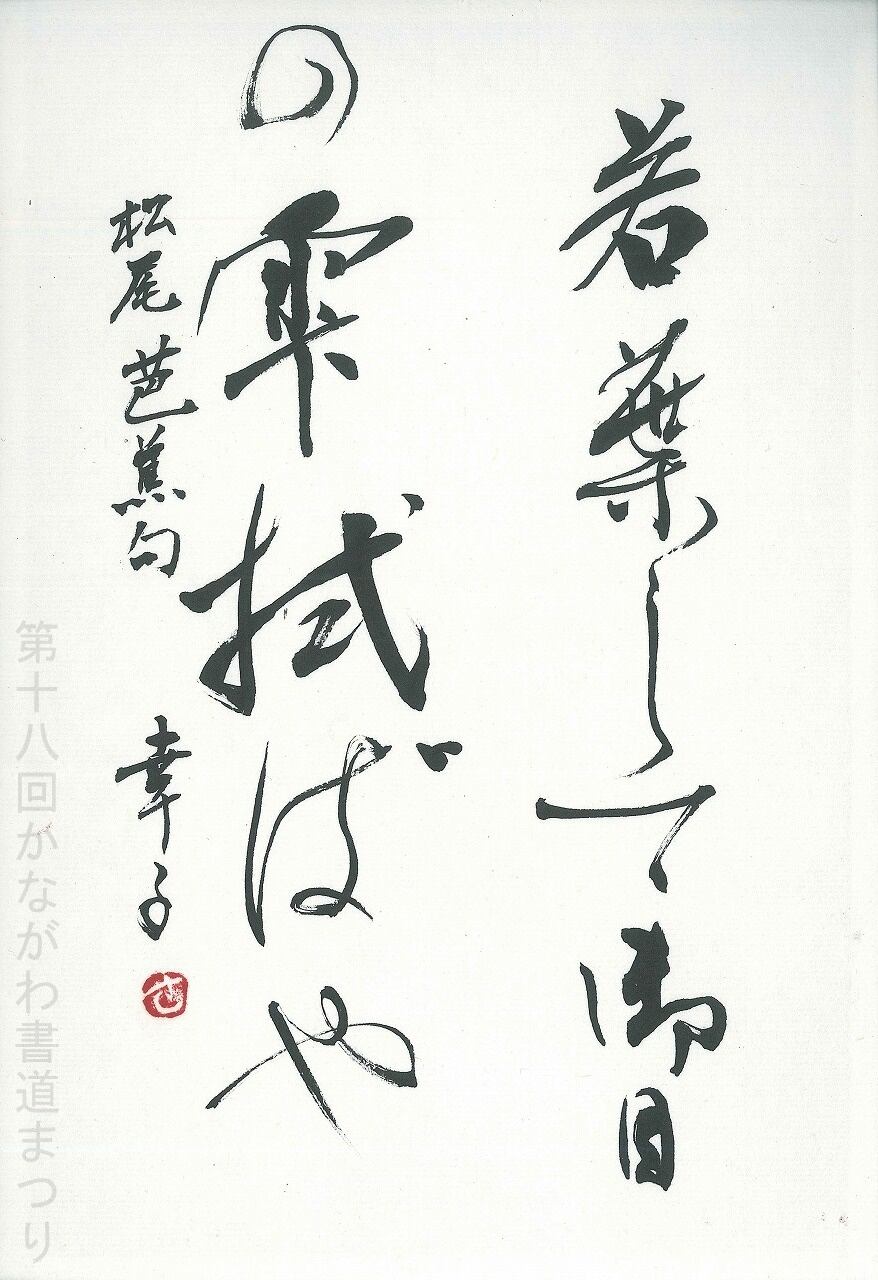 若葉して御目
の雫拭ばや
松尾芭蕉句 幸子
第十八回かながわ書道まつり